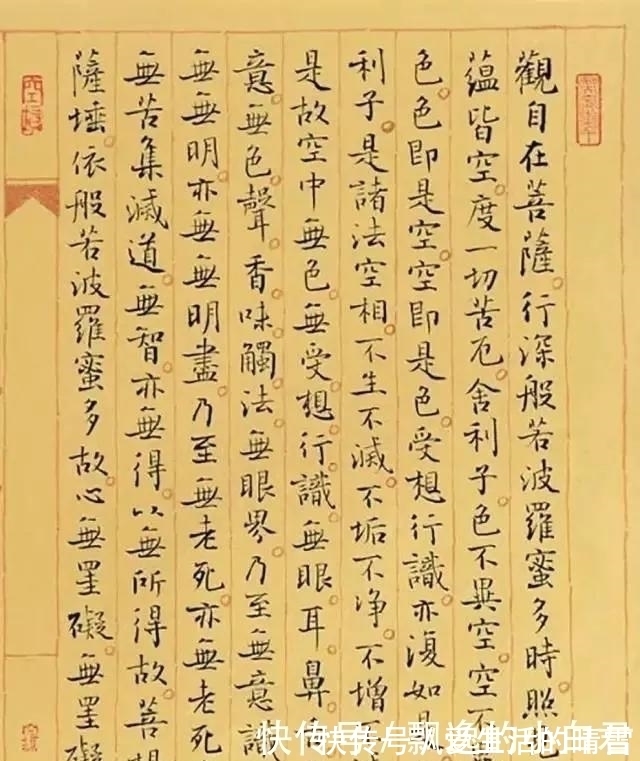 觀自在菩薩行深般若波羅蜜多時照
蘊皆空度一切苦厄舍利子色不異空空不
色色即是空空即是色受想行識亦復如是
利子是諸法空相不生不滅不垢不净不增
是故空中無色無受想行識無眼耳鼻舌
意無色聲香味觸法無眼界乃至無意識
無無明亦無無明盡乃至無老死亦無老死
無苦集滅道無智亦無得以無所得故菩提
薩埵依般若波羅蜜多故心無罣礙無罣礙
快传号